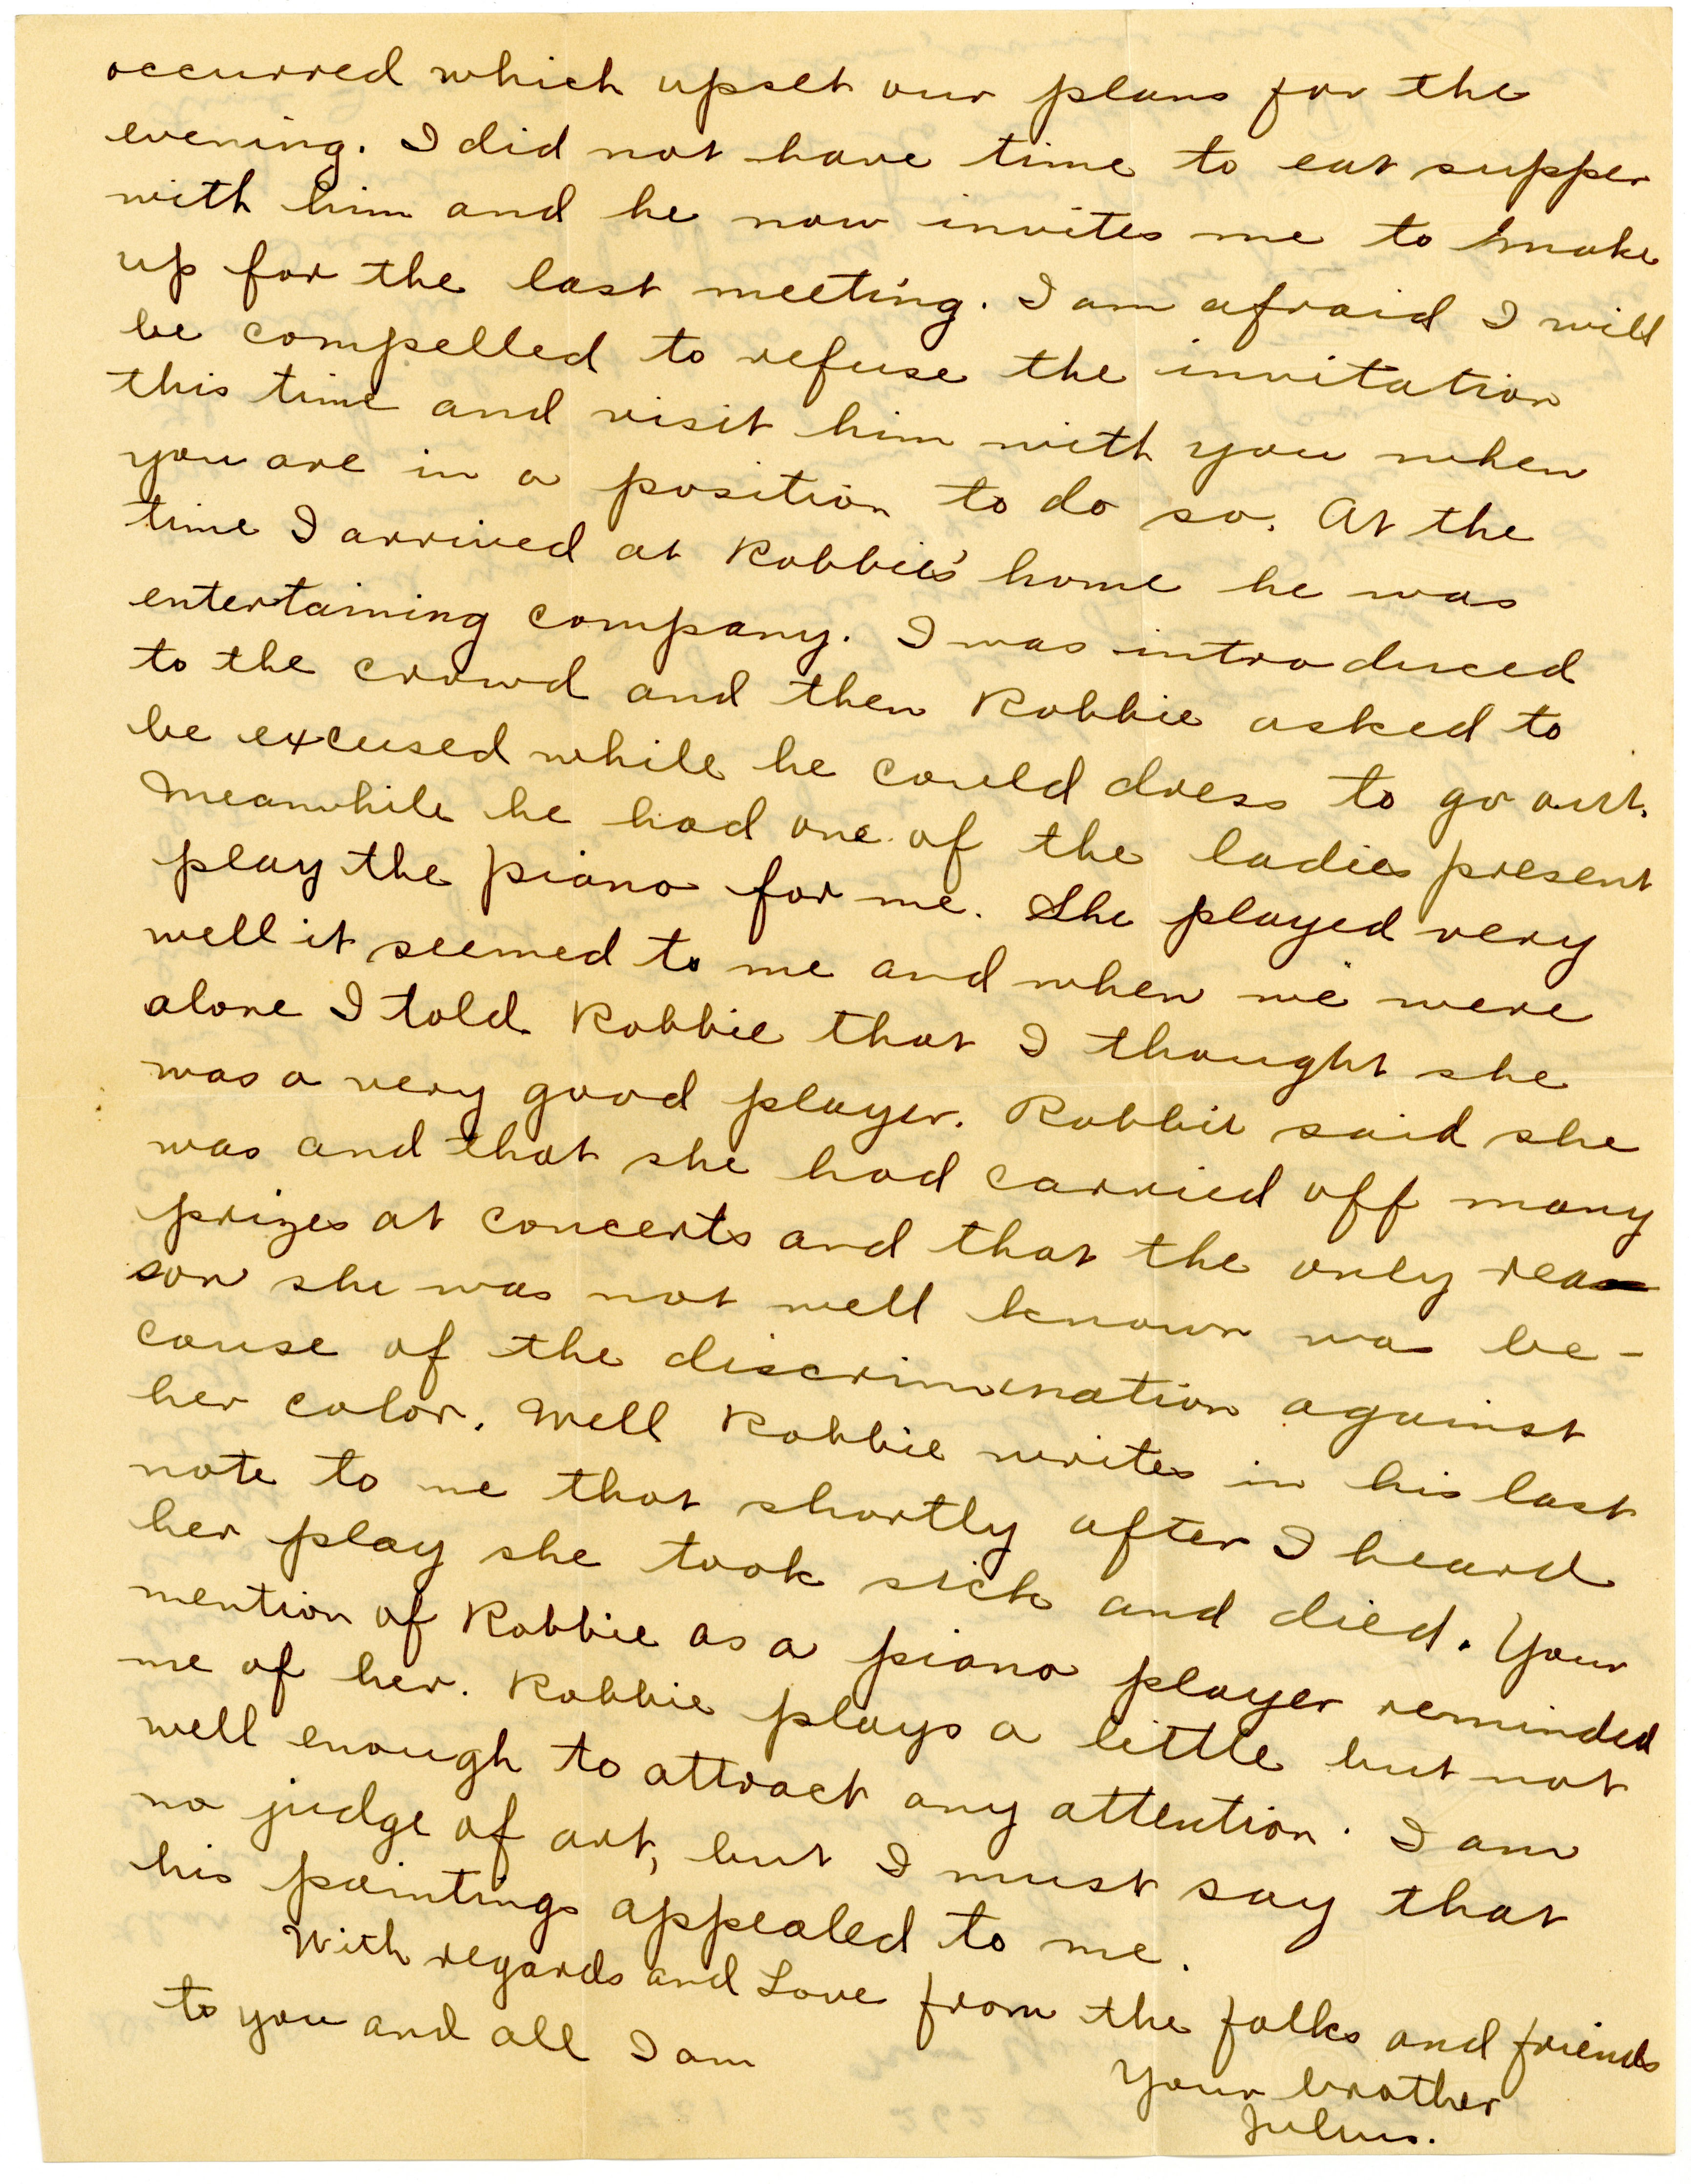 occurred which upset our plans for the
evening. I did not have time to eat supper
with him and he now invites me to make
up for the last meeting. I am afraid I will
be compelled to refuse the invitation
this time and visit him with you when
you are in a position to do so. At the
time I arrived at Robbie's home he was
entertaining company. I was introduced
to the crowd and then Robbie asked to
be excused while he could dress to go out.
Meanwhile he had one of the ladies present
play the piano for me. She played very
well it seemed to me and when we were
alone I told Robbie that I thought she
was a very good player. Robbie said she
was and that she had carried off many
prizes at concerts and that the only rea-
son she was not well known was be-
cause of the discrimination against
her color. Well Robbie writes in his last
note to me that shortly after I heard
her play she took sick and died. Your
mention of Robbie as a piano player reminded
me of her. Robbie plays a little but not
well enough to attract any attention. I am
no judge of art, but I must say that
his paintings appealed to me.
With regards and Love from the folks and friends
to you and all I am
Your brother
Julius.